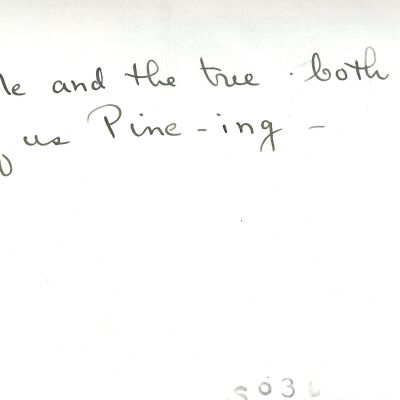 and the tree . both
us Pine-ing -